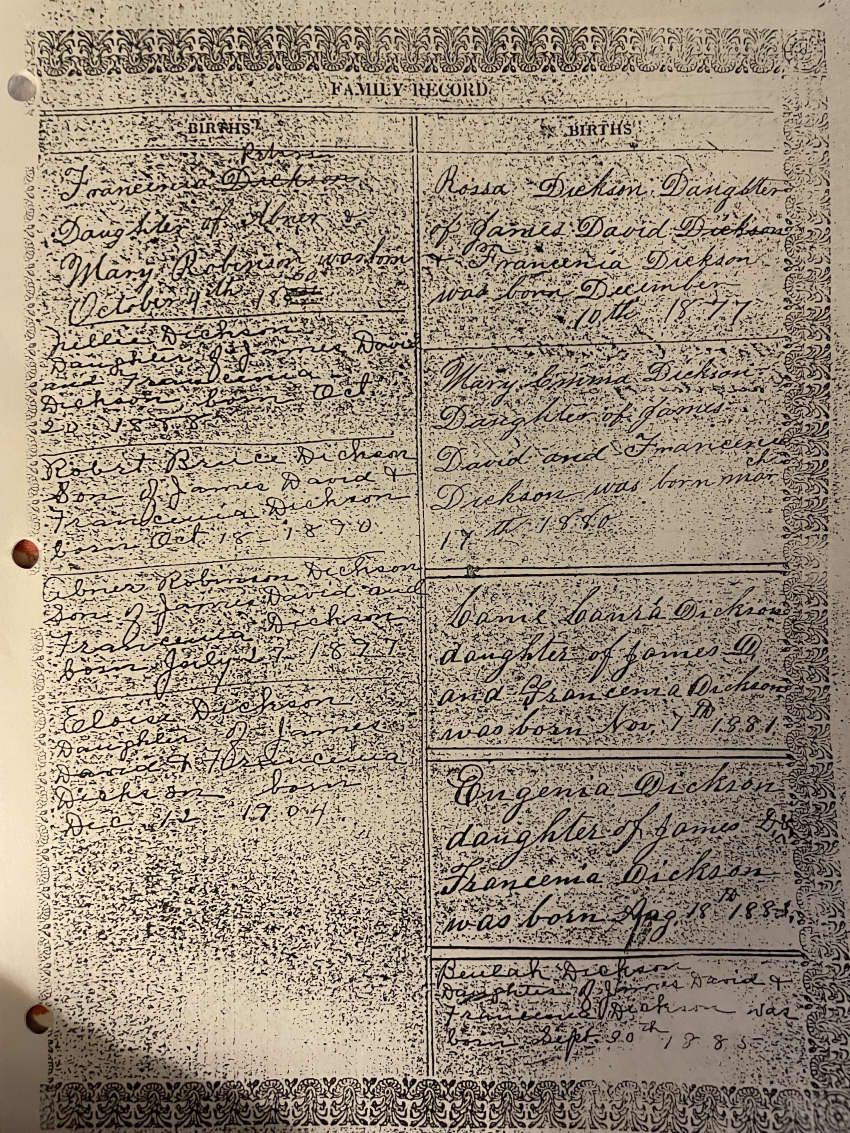 FAMILY RECORD
BIRTHS
Francenia Dickson
Daughter of Abner &
Mary Robinson was born
October 4th 18
Dickson
Daughter of James David
and Francenia
Dickson, born Oct
20 1888
Robert Bruce Dickson
Son of James David &
Francenia Dickson
born Oct 18 - 1890
Abner Robinson Dickson
Son of James David and
Francenia Dickson
born July 27 1897
Eloise Dickson
Daughter of James
David & Francenia
Dickson born
Dec 12 1904
BIRTHS
Rossa Dickson Daughter
of James David Dickson
& Francenia Dickson
was born December
10th 1877
Mary Emma Dickson
Daughter of James
David and Francenia
Dickson was born march
17th 1880
Laura Dickson
daughter of James D
and Francenia Dickson
was born Nov. 7th 1881
Eugenia Dickson
daughter of James
Francenia Dickson
was born Aug. 18th 1883
Beulah Dickson
Daughter of James David &
Francenia Dickson was
born Sept. 20th 1885